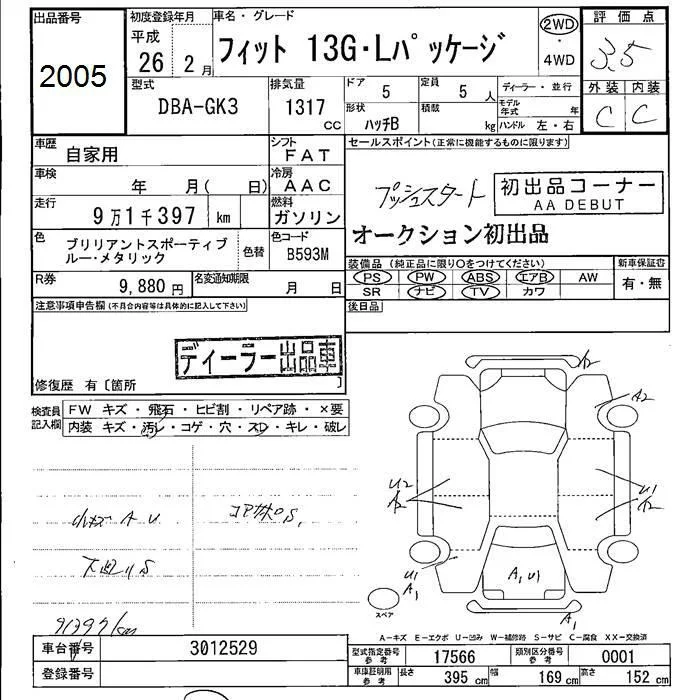 出品番号
2005
初度登録年月
平成
26 2月
車名・グレード
フィット 13G・Lパッケージ
2WD
・
4WD
評価点
3.5
型式
DBA-GK3
排気量
1317
CC
ドア
5
定員
5 人
形状
ハッチB
積載
kg
ディーラー・並行
モデル年式 年
ハンドル 左・右
外装 内装
C C
車歴
自家用
シフト
FAT
車検
年 月( 日)
冷房
AAC
走行
9万1千397 km
燃料
ガソリン
色
ブリリアントスポーティブ
ルー・メタリック
色替
色コード
B593M
R券
9,880 円
名変通知期限
月 日
セールスポイント(正常に機能するものに限ります)
プッシュスタート
初出品コーナー
AA DEBUT
オークション初出品
装備品(純正品に限り○をつけてください)
PS PW ABS エアB AW
SR ナビ TV カワ
新車保証書
有・無
後日品
注意事項申告欄(不具合内容等は具体的に記入して下さい)
ディーラー出品車
修復歴 有〔箇所 〕
検査員
記入欄
FW キズ・飛石・ヒビ割・リペア跡・×要
内装 キズ・汚レ・コゲ・穴・スレ・キレ・破レ
小キズ A U
コアサポS,
下廻りS
91397km
A2
A2
U2
A2
U1
A2
U1
A1
A1 U1
A1
スペア
A－キズ E－エクボ U－凹み W－補修跡 S－サビ C－腐食 XX－交換済
車台番号
3012529
登録番号
型式指定番号
参考
17566
類別区分番号
参考
0001
車庫証明用
参考
長さ
395 cm
幅
169 cm
高さ
152 cm